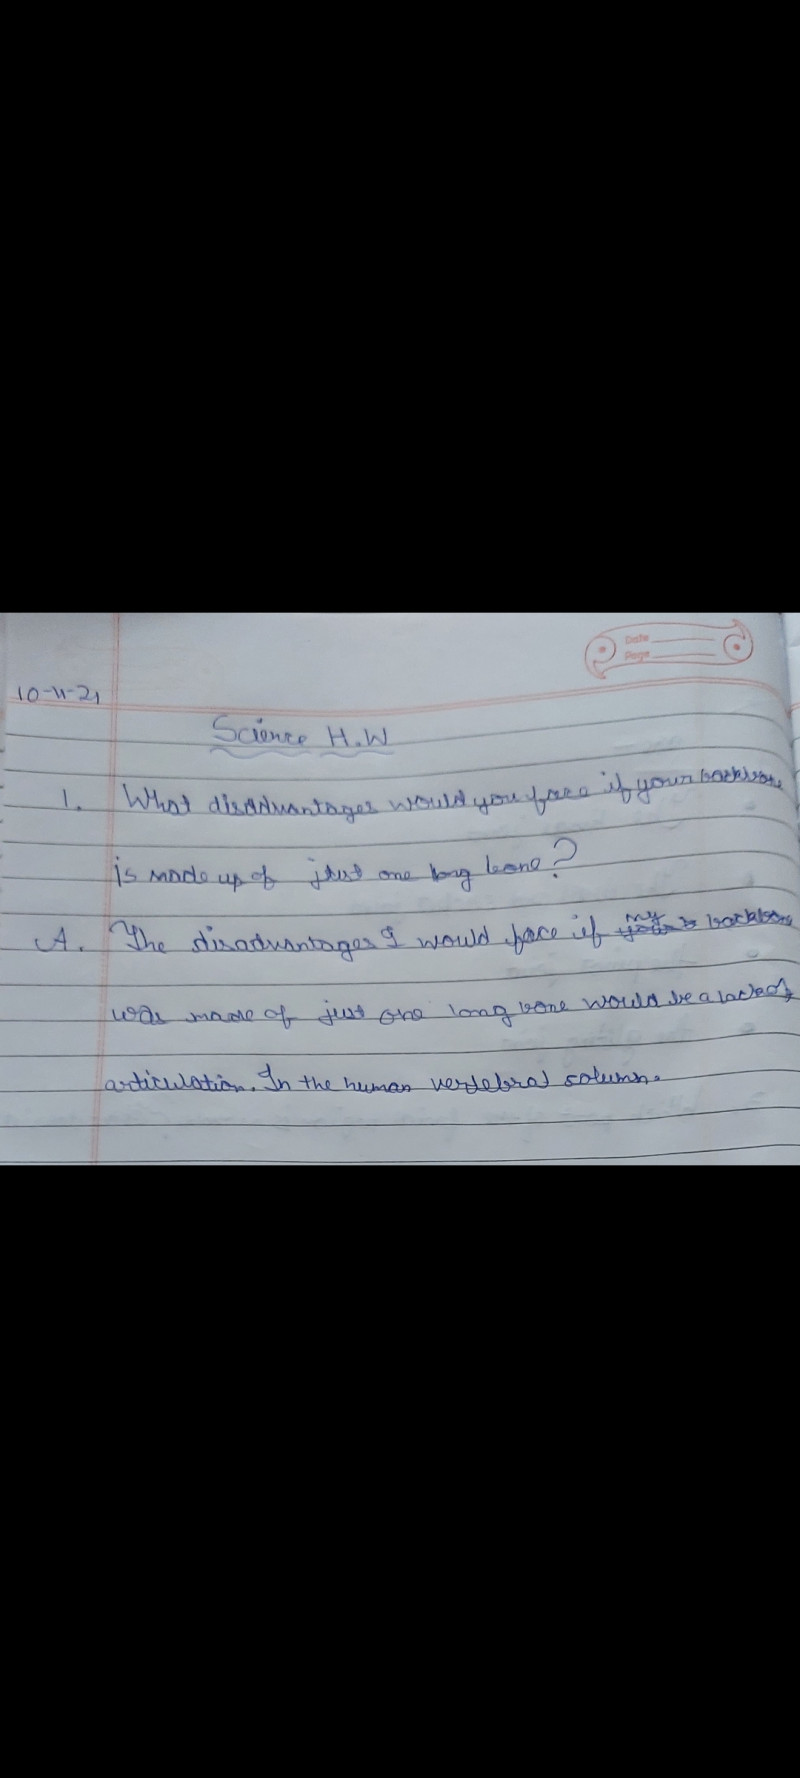 Date
Page
10-11-21
Science H.W
1. What disadvantages would you face if your backbone
is made up of just one long bone?
A. The disadvantages I would face if my backbone
was made of just one long bone would be a lack of
articulation. In the human vertebral column.